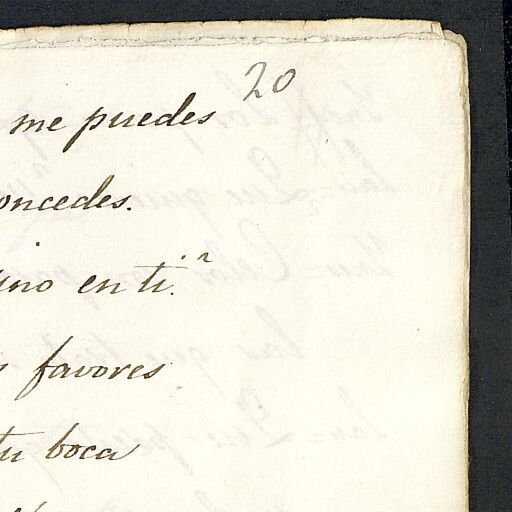 20
me puedes
oncedes.
ino en ti.
favores
tu boca